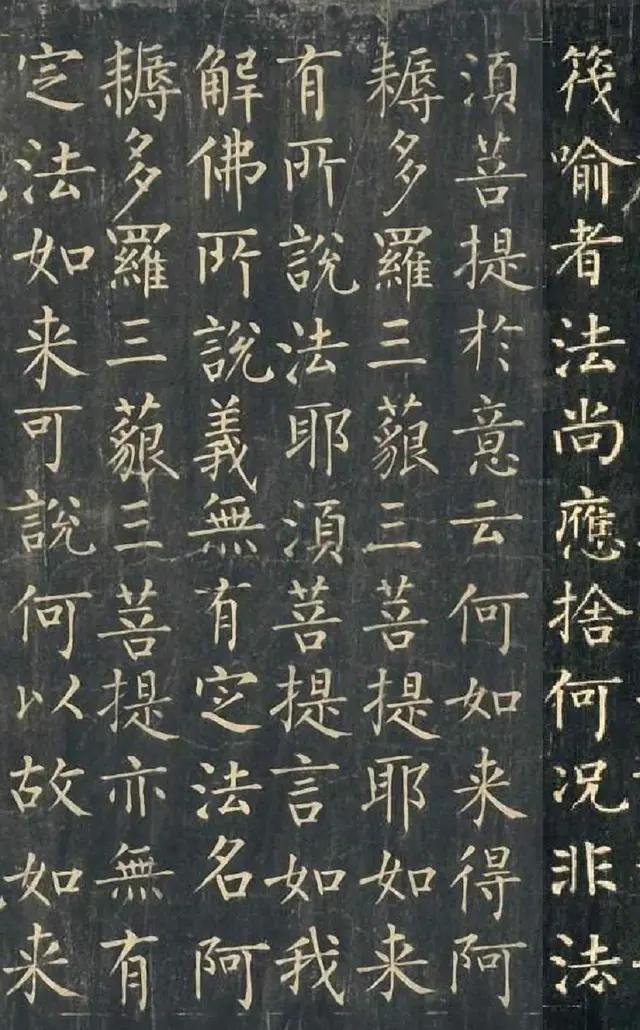 筏喻者法尚應捨何況非法
須菩提於意云何如来得阿
耨多羅三藐三菩提耶如来
有所說法耶須菩提言如我
解佛所說義無有定法名阿
耨多羅三藐三菩提亦無有
定法如来可說何以故如来